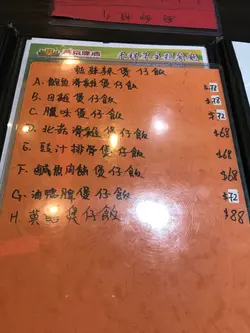 燕京啤酒
熱辣辣煲仔飯
A. 鮑魚滑雞煲仔飯 $78
B. 田雞煲仔飯
C. 臘味煲仔飯 $72
D. 北菇滑雞煲仔飯 $68
E. 豉汁排骨煲仔飯 $68
F. 鹹魚肉餅煲仔飯 $68
G. 油鴨脾煲仔飯 $72
H. 黃鱔煲仔飯 $88